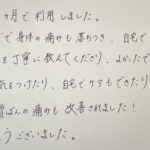 ヶ月で利用しました。
で身体の痛みも落ちつき、自宅で
を丁寧に教えてくださり、よかったで
気をつけたり、自宅でケアもできたり
盤の痛みも改善されました！
うございました。